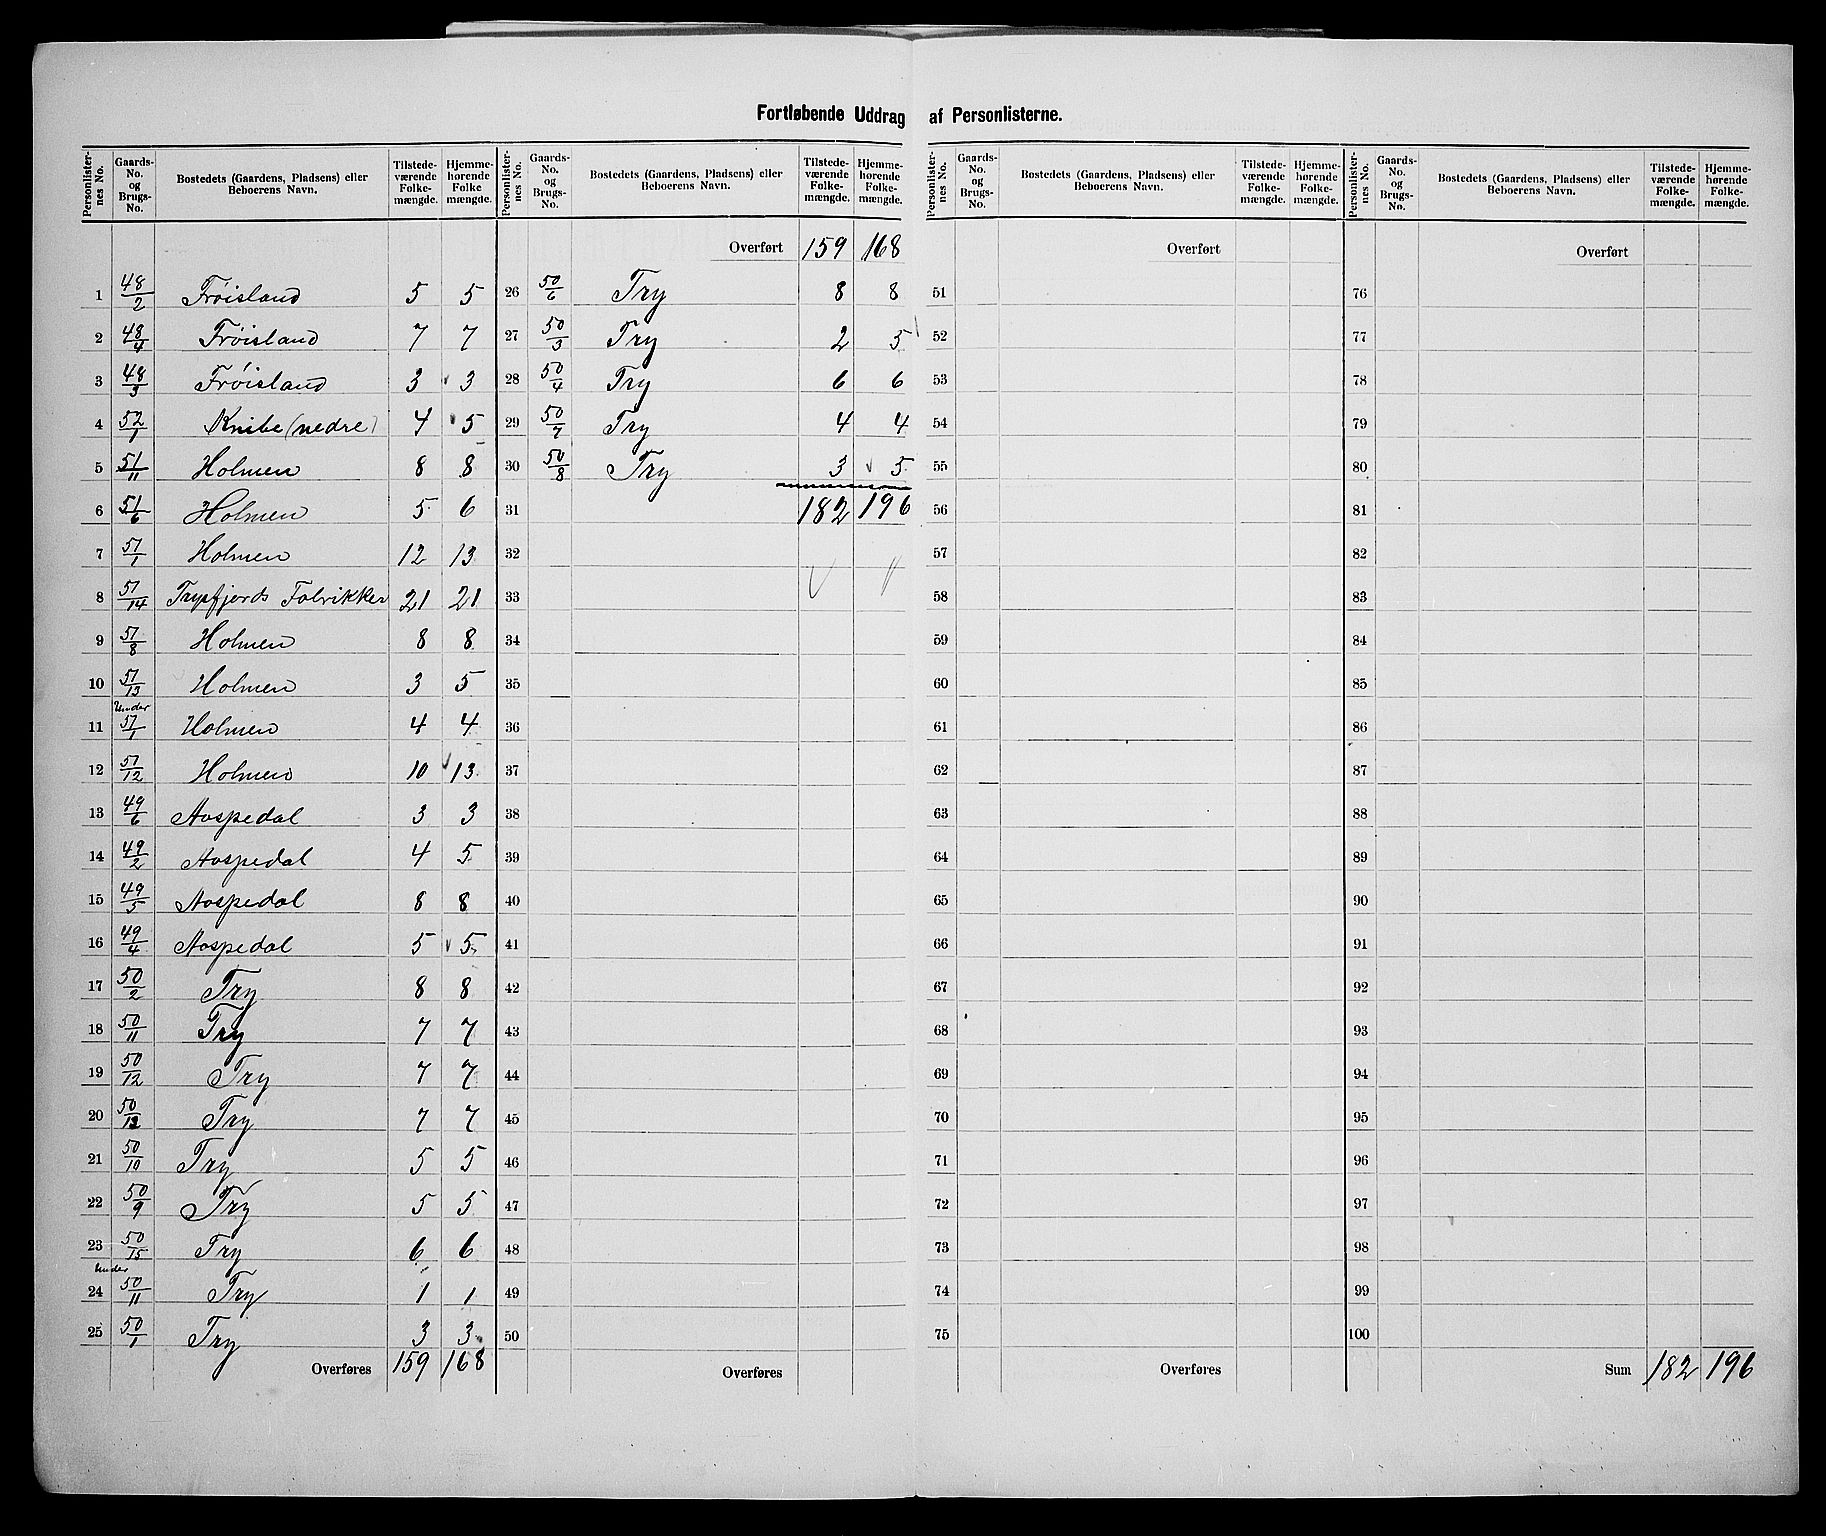 Fortløbende Uddrag af Personlisterne.
Personlister-nes No. Gaards-No. og Brugs-No. Bostedets (Gaardens, Pladsens) eller Beboerens Navn. Tilstede-værende Folke-mængde. Hjemme-hørende Folke mængde.
1 48/2 Frøisland 5 5
2 48/4 Frøisland 7 7
3 48/3 Frøisland 3 3
4 52/1 Knibe (nedre) 4 5
5 51/11 Holmen 8 8
6 51/6 Holmen 5 6
7 51/1 Holmen 12 13
8 51/14 Trysfjords Fabrikker 21 21
9 51/8 Holmen 8 8
10 51/13 Holmen 3 5
11 Under 51/1 Holmen 4 4
12 51/12 Holmen 10 13
13 49/6 Aospedal 3 3
14 49/2 Aospedal 4 5
15 49/5 Aospedal 8 8
16 49/4 Aospedal 5 5
17 50/2 Try 8 8
18 50/11 Try 7 7
19 50/12 Try 7 7
20 50/13 Try 7 7
21 50/10 Try 5 5
22 50/9 Try 5 5
23 50/15 Try 6 6
24 Under 50/11 Try 1 1
25 50/1 Try 3 3
Overføres 159 168
Personlister-nes No. Gaards-No. og Brugs-No. Bostedets (Gaardens, Pladsens) eller Beboerens Navn. Tilstede-værende Folke-mængde. Hjemme-hørende Folke-mængde.
Overført 159 168
26 50/6 Try 8 8
27 50/3 Try 2 5
28 50/4 Try 6 6
29 50/7 Try 4 4
30 50/8 Try 3 5
31 182 196
32
33
34
35
36
37
38
39
40
41
42
43
44
45
46
47
48
49
50
Overføres
Personlister-nes No. Gaards-No. og Brugs-No. Bostedets (Gaardens, Pladsens) eller Beboerens Navn. Tilstede-værende Folke-mængde. Hjemme-hørende Folke-mængde.
Overført
51
52
53
54
55
56
57
58
59
60
61
62
63
64
65
66
67
68
69
70
71
72
73
74
75
Overføres
Personlister-nes No. Gaards-No. og Brugs-No. Bostedets (Gaardens, Pladsens) eller Beboerens Navn. Tilstede-værende Folke-mængde. Hjemme-hørende Folke-mængde.
Overført
76
77
78
79
80
81
82
83
84
85
86
87
88
89
90
91
92
93
94
95
96
97
98
99
100
Sum 182 196